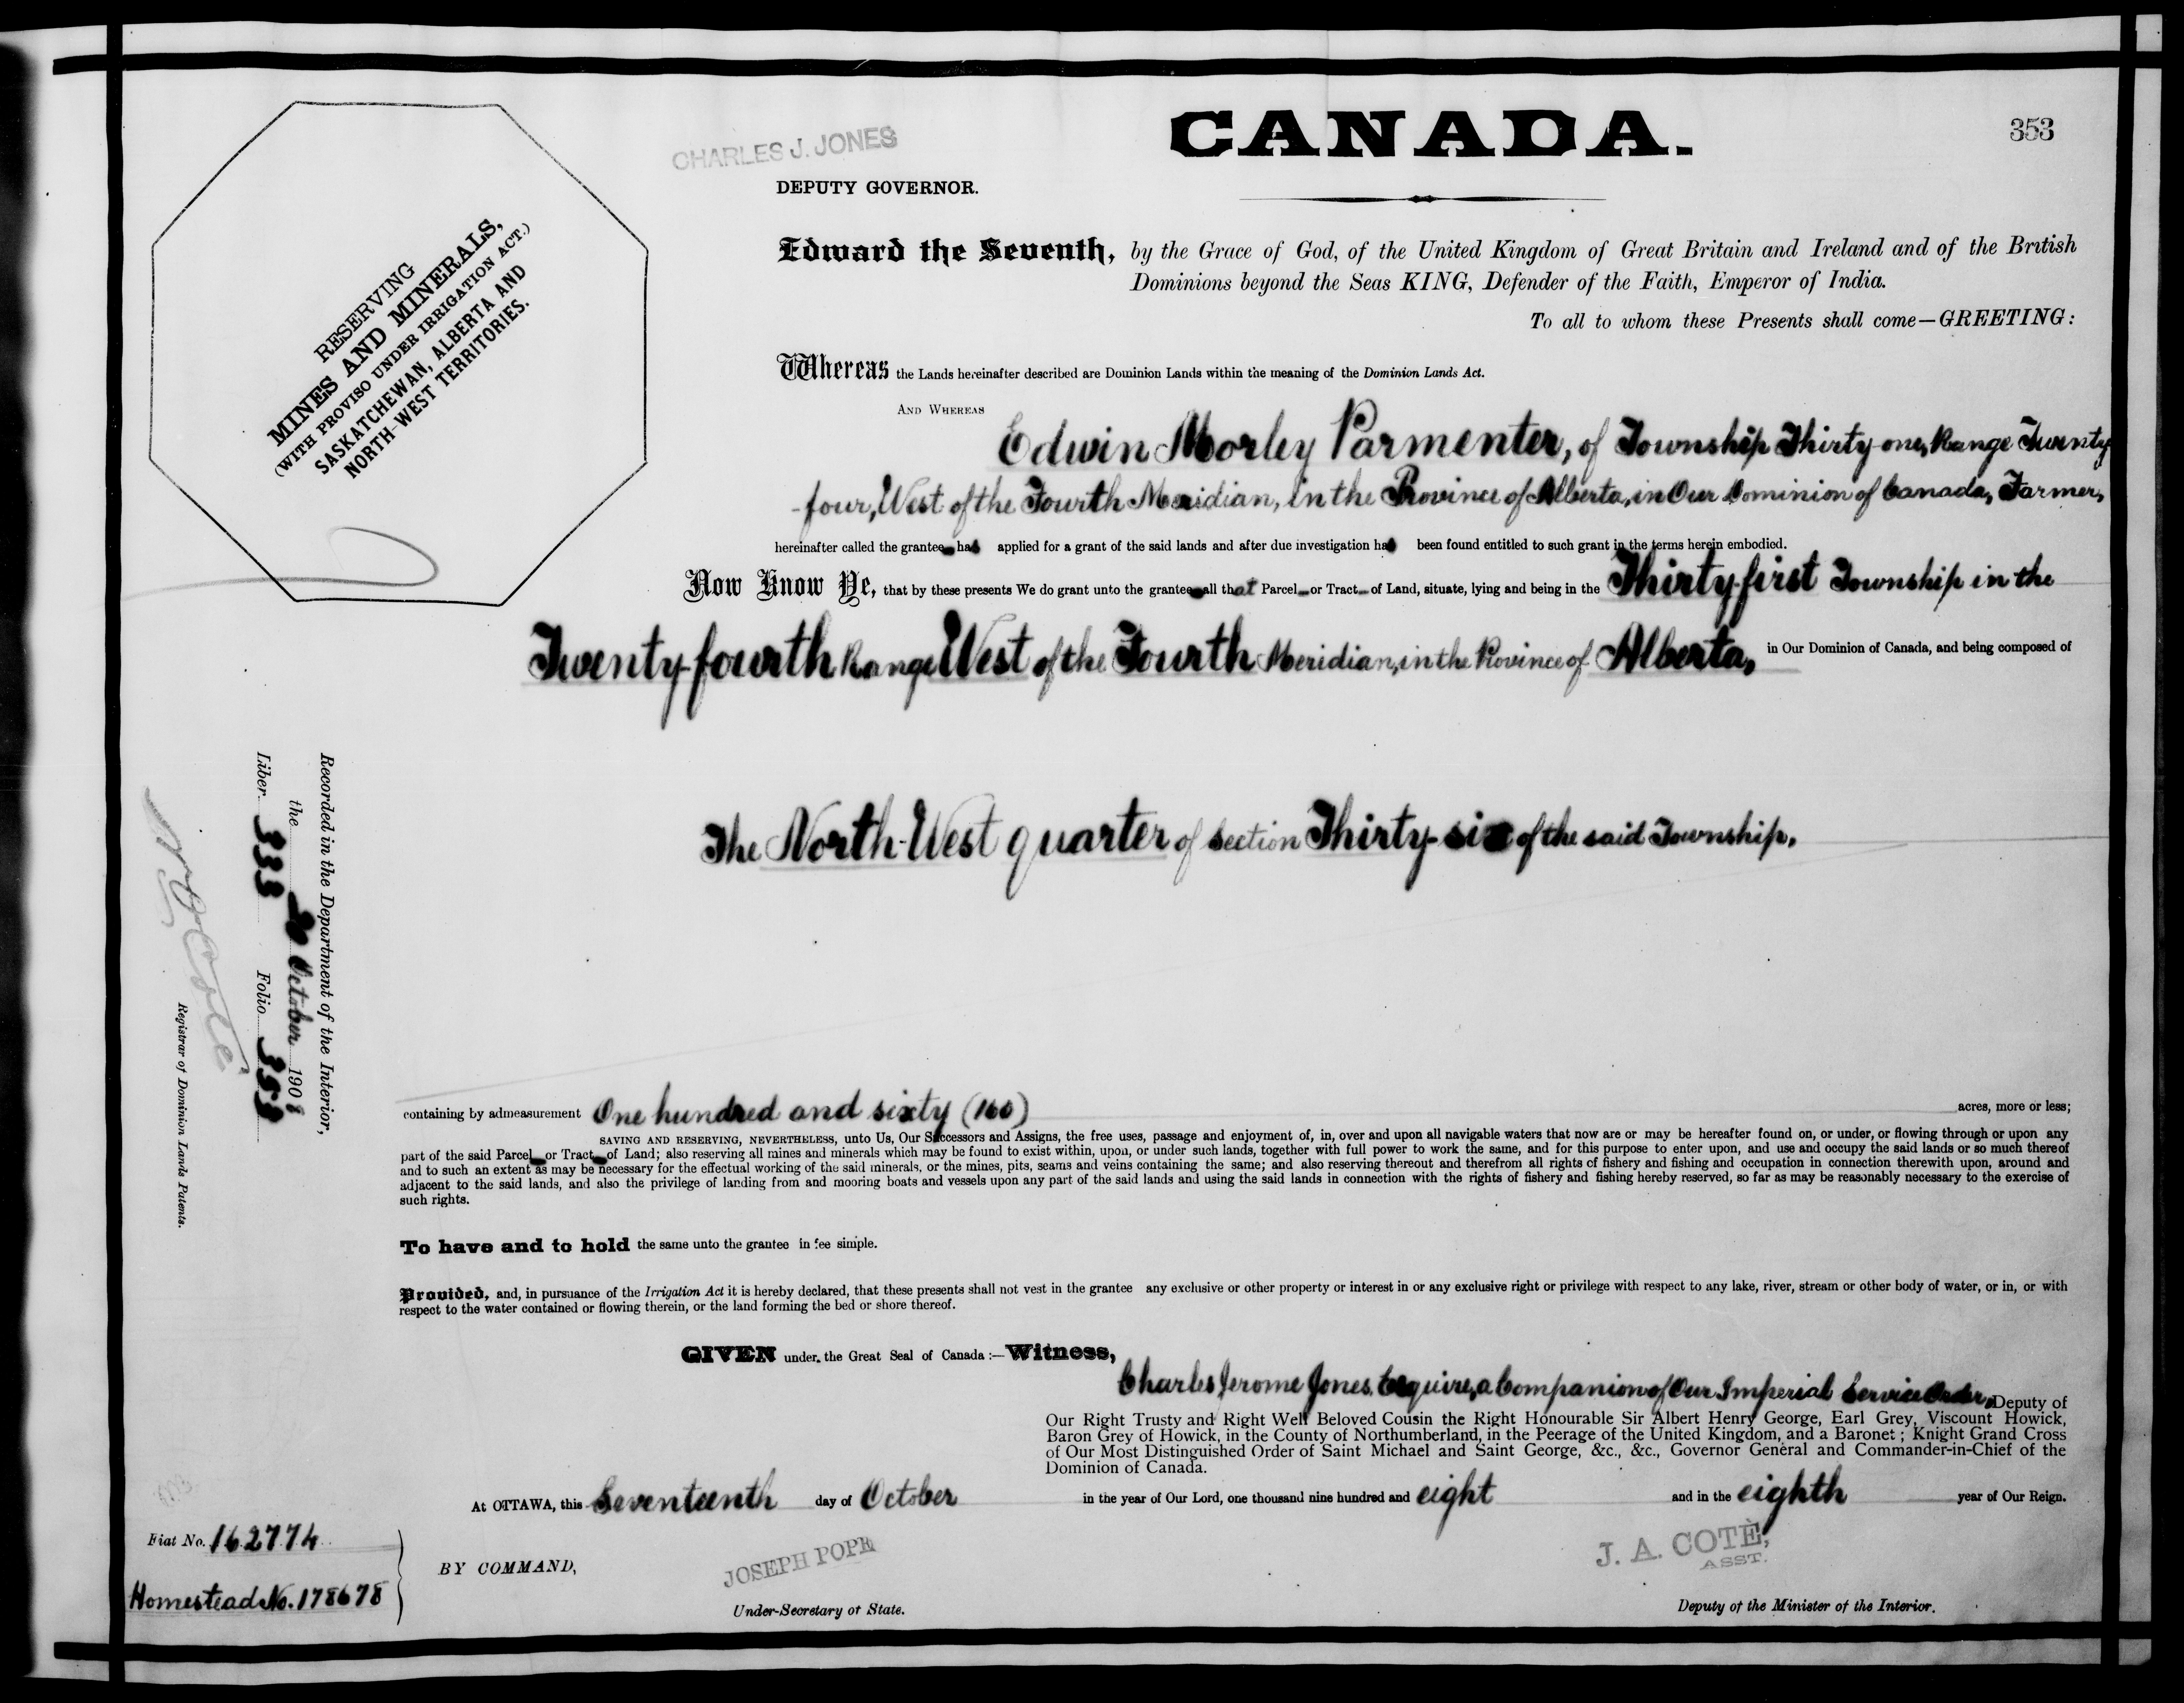 CANADA.
353
CHARLES J. JONES
DEPUTY GOVERNOR.
RESERVING
MINES AND MINERALS,
(WITH PROVISO UNDER IRRIGATION ACT.)
SASKATCHEWAN, ALBERTA AND
NORTH-WEST TERRITORIES.
Edward the Seventh, by the Grace of God, of the United Kingdom of Great Britain and Ireland and of the British
Dominions beyond the Seas KING, Defender of the Faith, Emperor of India.
To all to whom these Presents shall come—GREETING:
Whereas the Lands hereinafter described are Dominion Lands within the meaning of the Dominion Lands Act.
AND WHEREAS
Edwin Morley Parmenter, of Township Thirty-one, Range Twenty
-four, West of the Fourth Meridian, in the Province of Alberta, in Our Dominion of Canada, Farmer,
hereinafter called the grantee has applied for a grant of the said lands and after due investigation has been found entitled to such grant in the terms herein embodied.
Now Know Ye, that by these presents We do grant unto the grantee all that Parcel or Tract of Land, situate, lying and being in the Thirty-first Township in the
Twenty-fourth Range West of the Fourth Meridian, in the Province of Alberta, in Our Dominion of Canada, and being composed of
The North-West quarter of section Thirty-six of the said Township.
Recorded in the Department of the Interior,
the 20 October 1908
Liber 333 Folio 353
Registrar of Dominion Lands Patents.
containing by admeasurement One hundred and sixty (160) acres, more or less;
SAVING AND RESERVING, NEVERTHELESS, unto Us, Our Successors and Assigns, the free uses, passage and enjoyment of, in, over and upon all navigable waters that now are or may be hereafter found on, or under, or flowing through or upon any
part of the said Parcel or Tract of Land; also reserving all mines and minerals which may be found to exist within, upon, or under such lands, together with full power to work the same, and for this purpose to enter upon, and use and occupy the said lands or so much thereof
and to such an extent as may be necessary for the effectual working of the said minerals, or the mines, pits, seams and veins containing the same; and also reserving thereout and therefrom all rights of fishery and fishing and occupation in connection therewith upon, around and
adjacent to the said lands, and also the privilege of landing from and mooring boats and vessels upon any part of the said lands and using the said lands in connection with the rights of fishery and fishing hereby reserved, so far as may be reasonably necessary to the exercise of
such rights.
To have and to hold the same unto the grantee in fee simple.
Provided, and, in pursuance of the Irrigation Act it is hereby declared, that these presents shall not vest in the grantee any exclusive or other property or interest in or any exclusive right or privilege with respect to any lake, river, stream or other body of water, or in, or with
respect to the water contained or flowing therein, or the land forming the bed or shore thereof.
GIVEN under the Great Seal of Canada:—Witness,
Charles Jerome Jones, Esquire, a Companion of Our Imperial Service Order, Deputy of
Our Right Trusty and Right Well Beloved Cousin the Right Honourable Sir Albert Henry George, Earl Grey, Viscount Howick,
Baron Grey of Howick, in the County of Northumberland, in the Peerage of the United Kingdom, and a Baronet; Knight Grand Cross
of Our Most Distinguished Order of Saint Michael and Saint George, &c., &c., Governor General and Commander-in-Chief of the
Dominion of Canada.
At OTTAWA, this Seventeenth day of October in the year of Our Lord, one thousand nine hundred and eight and in the eighth year of Our Reign.
Fiat No. 162774
Homestead No. 178678
BY COMMAND,
JOSEPH POPE
Under-Secretary of State.
J. A. COTÈ,
ASST.
Deputy of the Minister of the Interior.